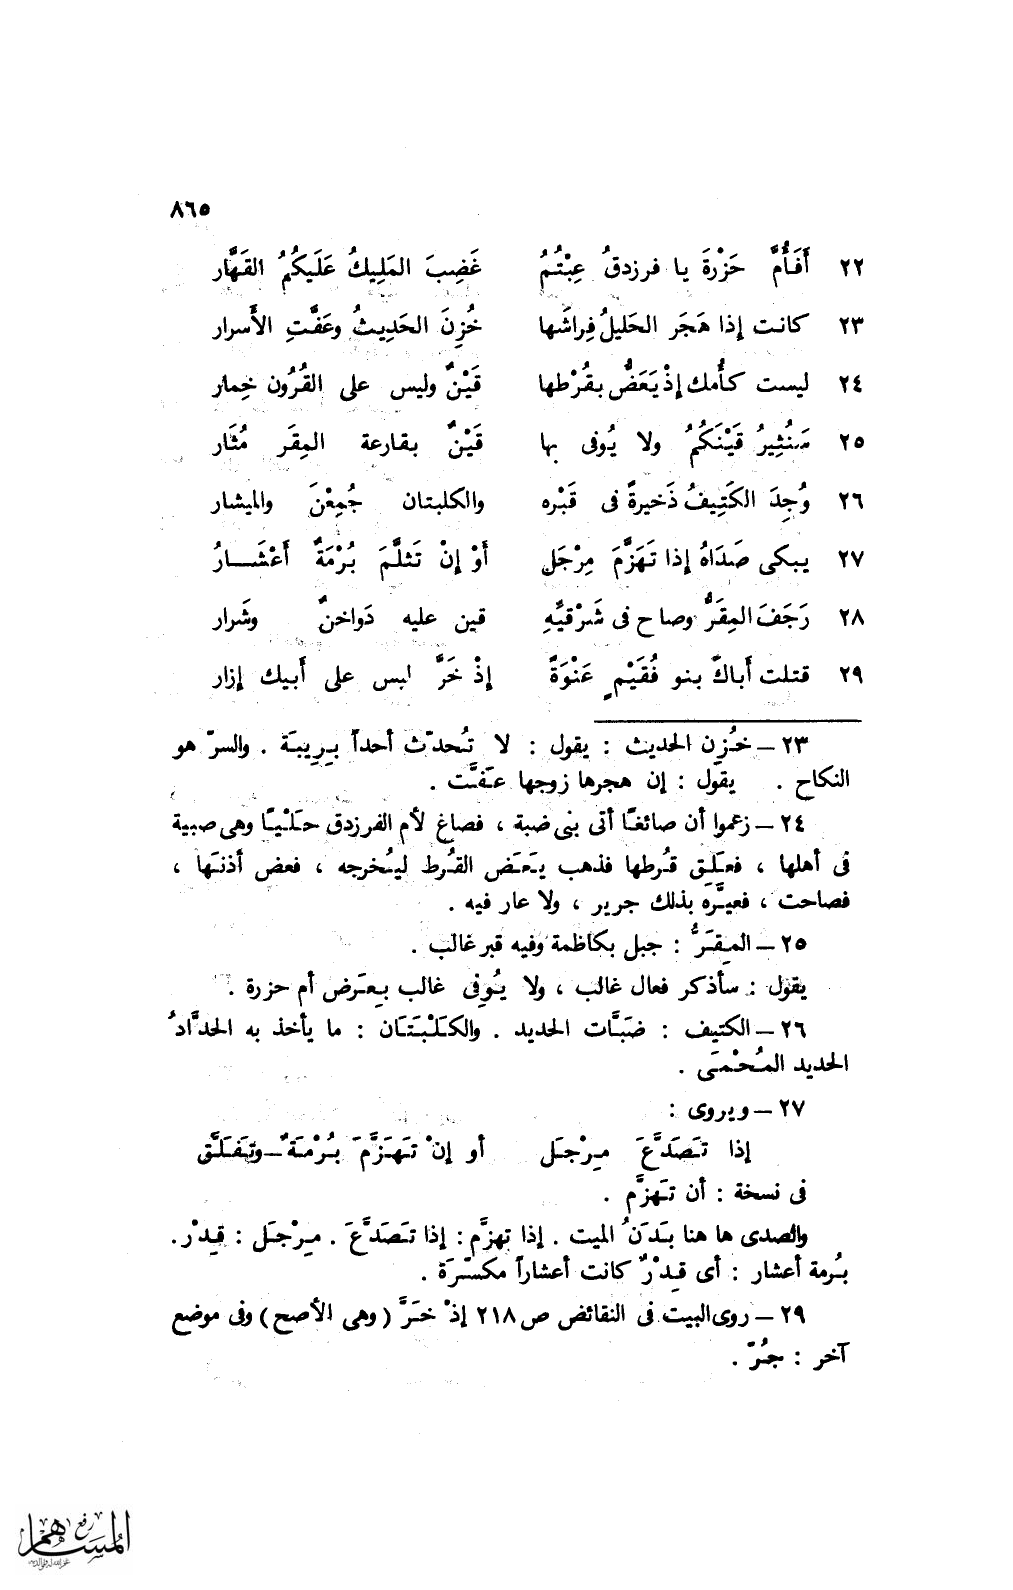 ٨٦٥
٢٢ أَفَأُمَّ حَزْرةَ يا فرزدقُ عِبْتُمُ غَضِبَ المَلِيكُ عَلَيكُمُ القَهَّار
٢٣ كانت إذا هَجَر الحَليلُ فِراشَها خُزِنَ الحَدِيثُ وعَفَّتِ الأَسرار
٢٤ ليست كأُمك إذْ يَعَضُّ بقُرْطها قَيْنٌ وليس على القُرُون خِمار
٢٥ سَنُثِيرُ قَيْنَكُمُ ولا يُوفى بها قَيْنٌ بقارعة المِقَر مُثَار
٢٦ وُجِدَ الكَتِيفُ ذَخيرةً فى قَبْره والكلبتان جُمِعْنَ والميشار
٢٧ يبكى صَدَاهُ إذا تَهَزَّمَ مِرْجَل أَوْ إنْ تَثلَّمَ بُرْمَةٌ أَعْشَـــارُ
٢٨ رَجَفَ المِقَرُّ وصاح فى شَرْقيِّهِ قين عليه دَواخنٌ وشَرار
٢٩ قتلت أَباكَ بنو فُقَيْمٍ عَنْوَةً إذْ خَرَّ ليس على أَبيك إزار
٢٣ – خُزِن الحديث : يقول : لا تُحدّث أحداً بِرِيبَة . والسرّ هو
النكاح . يقول : إن هجرها زوجها عَفَّت .
٢٤ – زعموا أن صائغًا أتى بنى ضبة ، فصاغ لأم الفرزدق حَلْيًا وهى صبية
فى أهلها ، فعَلِق قُرطها فذهب يَعَض القُرط ليُخرجه ، فعض أذنَها ،
فصاحت ، فعيَّره بذلك جرير ، ولا عار فيه .
٢٥ – المِقَرُّ : جبل بكاظمة وفيه قبر غالب .
يقول : سأذكر فعال غالب ، ولا يُوفِى غالب بعِرَض أم حزرة .
٢٦ – الكتيف : ضَبَّات الحديد . والكَلْبَتَان : ما يأخذ به الحدَّادُ
الحديد المُحْمَى .
٢٧ – ويروى :
إذا تَصَدَّعَ مِرْجَل أو إنْ تَهَزَّمَ بُرْمَةٌ – وتَفَلَّق
فى نسخة : أن تَهزَّم .
والصدى ها هنا بَدَنُ الميت . إذا تهزَّم : إذا تَصَدَّعَ . مِرْجَل : قِدْر .
بُرمة أعشار : أى قِدْرٌ كانت أعشاراً مكسّرَة .
٢٩ – روى البيت فى النقائض ص ٢١٨ إذْ خَرَّ (وهى الأصح) وفى موضع
آخر : جُرّ .
رفع
المساهم